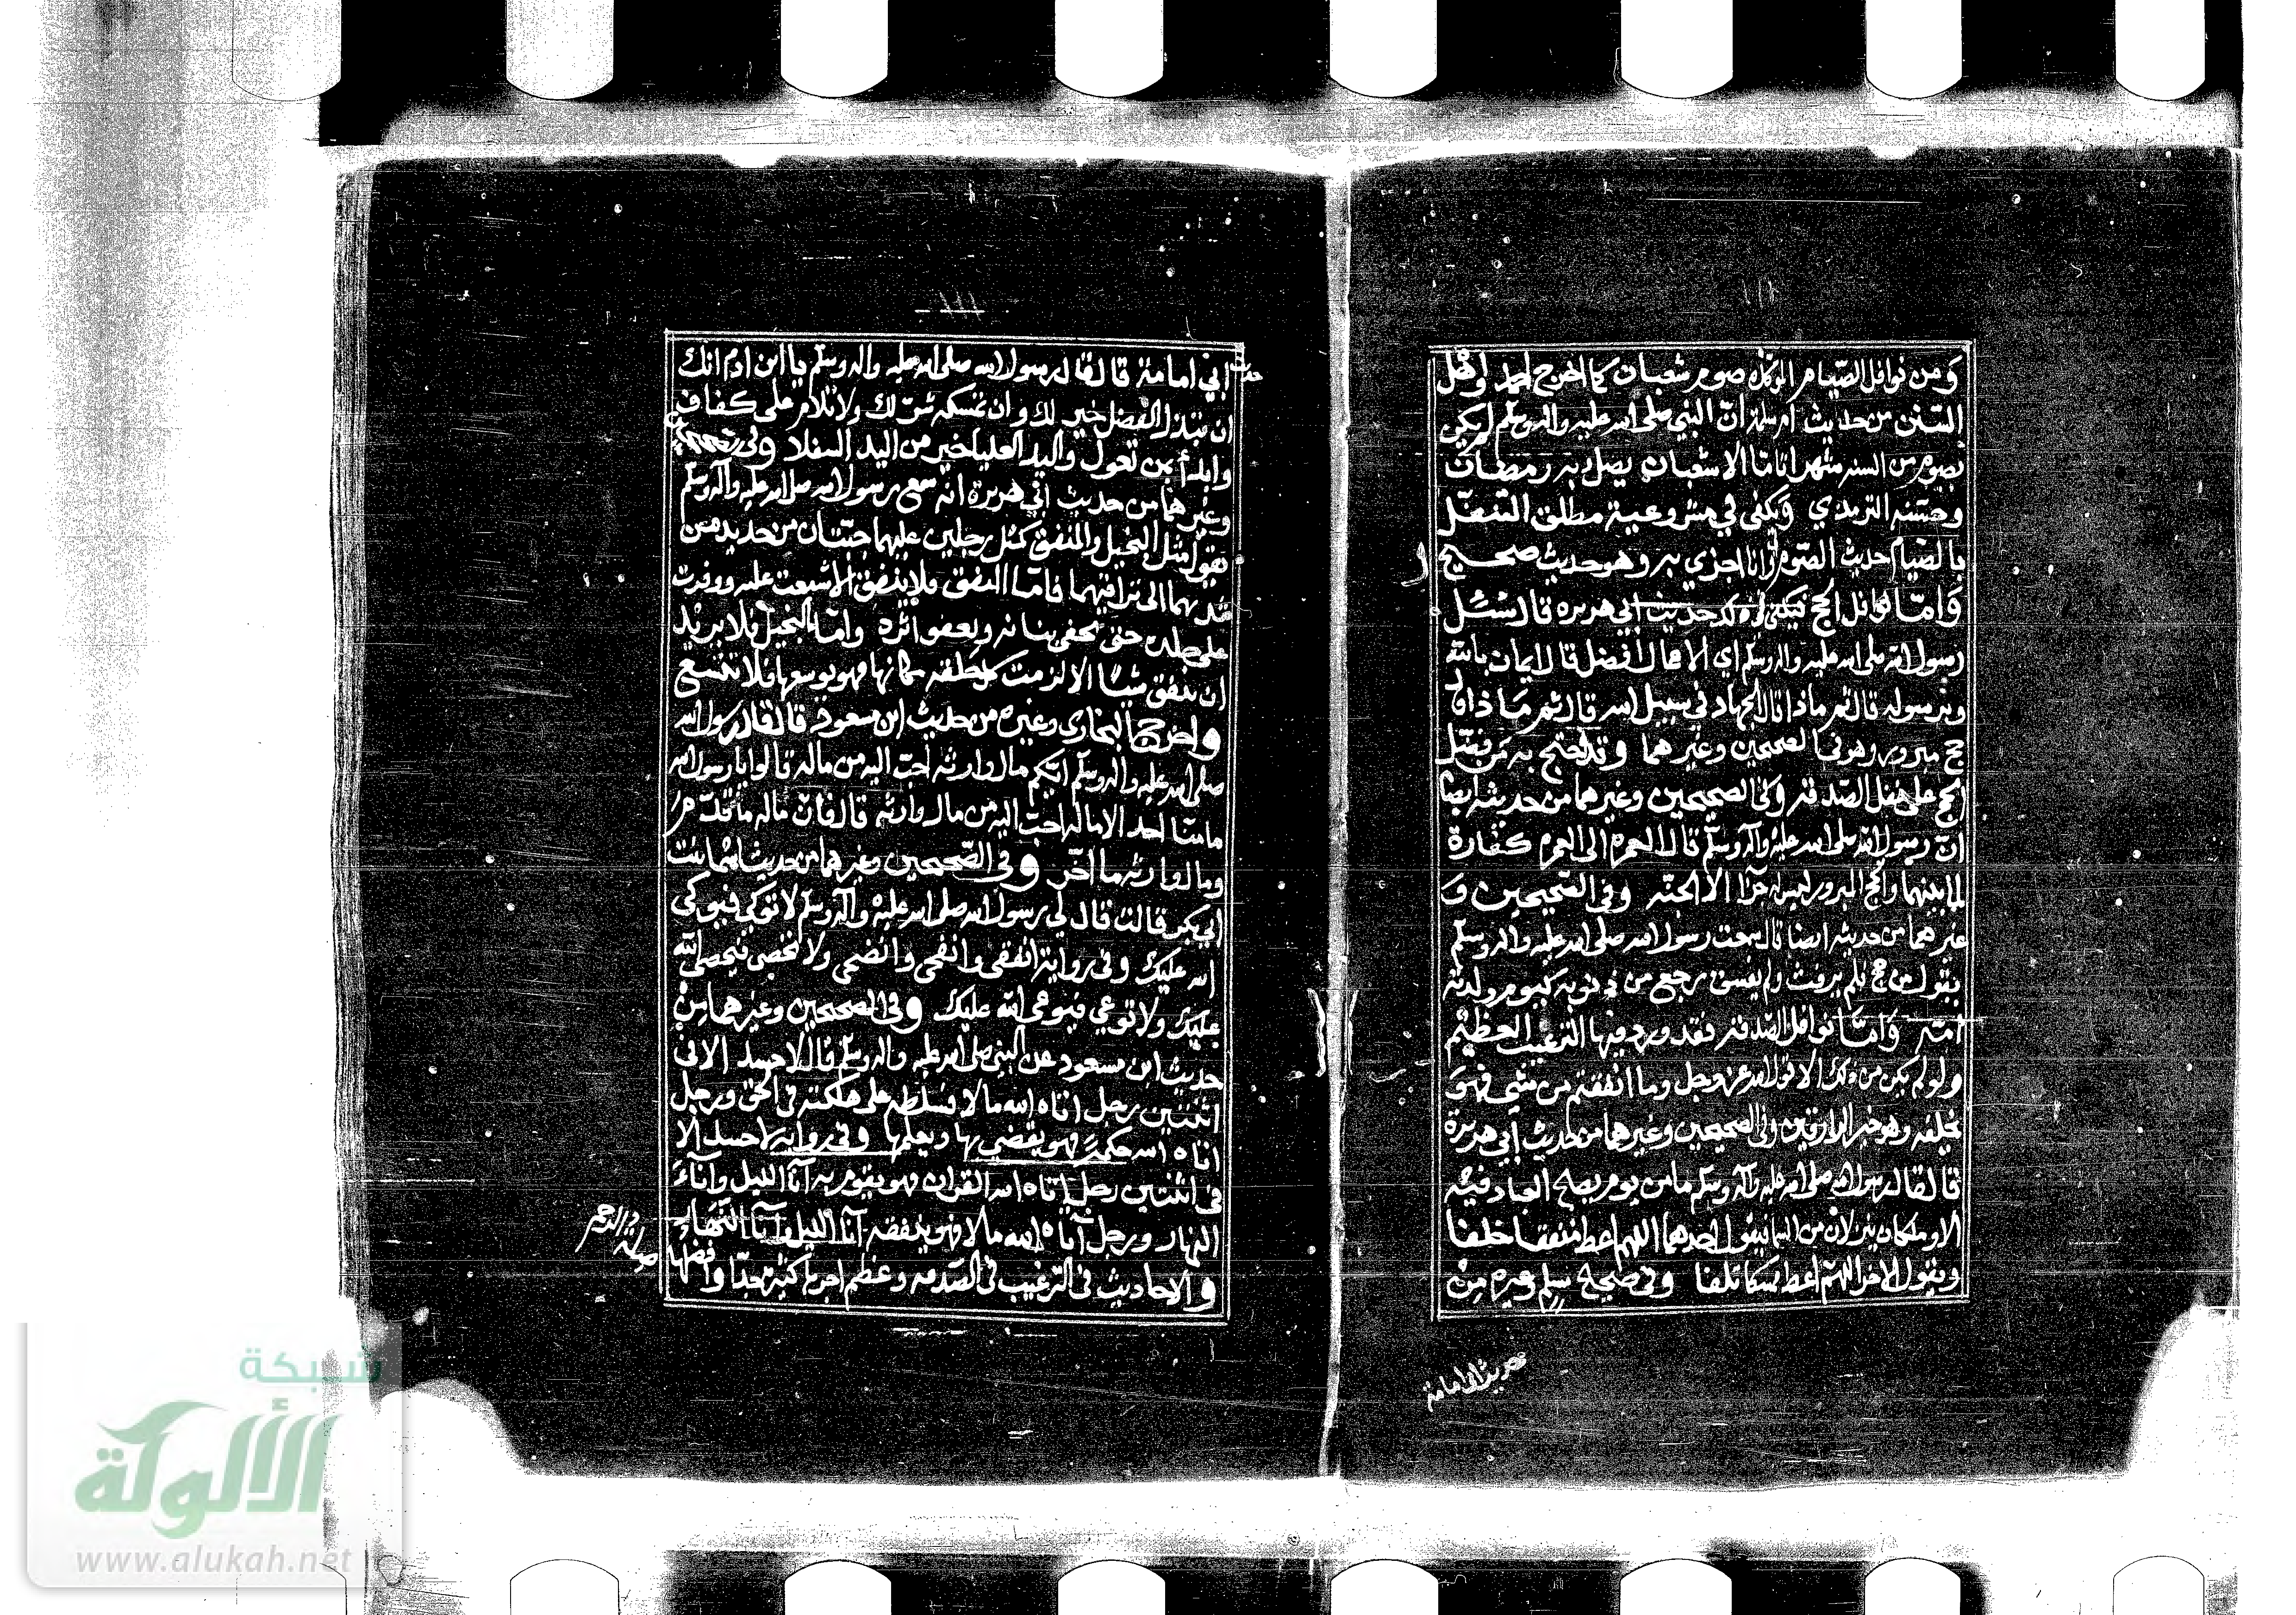 ومن نوافل الصيام المؤكدة صوم شعبان كما اخرج احمد واهل
السنن من حديث ام سلمة ان النبي صلى الله عليه واله وسلم لم يكن
يصوم من السنه شهرا تاما الا شعبان يصل به رمضان
وحسنه الترمذي ويكفي في مشروعية مطلق التنفل
بالصيام حديث الصوم لي وانا اجزي به وهو حديث صحيح
واما نوافل الحج حديث ابي هريره قال سئل
رسول الله صلى الله عليه واله وسلم اي الاعمال افضل قال ايمان بالله
وبرسوله قال ثم ماذا قال الجهاد في سبيل الله قال ثم ماذا قال
حج مبرور وهو في الصحيحين وغيرهما وقد احتج به من فضل
الحج على نفل الصدقة وفي الصحيحين وغيرهما من حديثه ايضا
ان رسول الله صلى الله عليه وآله وسلم قال العمره الى العمره كفارة
لما بينهما والحج المبرور ليس له جزآ الا الجنه وفي الصحيحين و
غيرهما من حديثه ايضا قال سمعت رسول الله صلى الله عليه واله وسلم
يقول من حج فلم يرفث ولم يفسق رجع من ذنوبه كيوم ولدته
امه واما نوافل الصدقة فقد ورد فيها الترغيب العظيم
ولو لم يكن من ذلك الا قول الله عز وجل وما انفقتم من شي فهو
يخلفه وهو خير الرازقين وفي الصحيحين وغيرهما من حديث ابي هريرة
قال قال رسول الله صلى الله عليه وآله وسلم ما من يوم يصبح العباد فيه
الا وملكان ينزلان من السما يقول احدهما اللهم اعط منفقا خلفا
ويقول الاخر اللهم اعط ممسكا تلفا وفي صحيح مسلم وغيره من
حديث ابي امامة
حديث
ابي امامة قال قال رسول الله صلى الله عليه واله وسلم يا ابن ادم انك
ان تبذل الفضل خير لك وان تمسكه شر لك ولا تلام على كفاف
وابدأ بمن تعول واليد العليا خير من اليد السفلا وفي
وغيرهما من حديث ابي هريرة انه سمع رسول الله صلى الله عليه وآله وسلم
يقول مثل البخيل والمنفق كمثل رجلين عليهما جبتان من حديد من
ثديهما الى تراقيهما فاما المنفق فلا ينفق الا سبغت عليه ووفرت
على جلده حتى تخفي بنانه ويعفو أثره واما البخيل فلا يريد
ان ينفق شيئا الا لزمت كل حلقه مكانها فهو يوسعها فلا تتسع
واخرج البخاري وغيره من حديث ابن مسعود قال قال رسول الله
صلى الله عليه واله وسلم ايكم مال وارثه احب اليه من ماله قالوا يا رسول الله
ما منا احد الا ماله احب اليه من مال وارثه قال فان ماله ما قدم
ومال وارثه ما اخر وفي الصحيحين وغيرهما من حديث اسما بنت
ابي بكر قالت قال لي رسول الله صلى الله عليه وآله وسلم لا توكي فيوكي
الله عليك وفي رواية انفقي وانفحي وانضحي ولا تحصي فيحصي الله
عليك ولا توعي فيوعي الله عليك وفي الصحيحين وغيرهما من
حديث ابن مسعود عن النبي صلى الله عليه واله وسلم قال لا حسد الا في
اثنتين رجل اتاه الله مالا فسلطه على هلكته في الحق ورجل
اتاه الله حكمة فهو يقضي بها ويعلمها وفي رواية لا حسد الا
في اثنتين رجل اتاه الله القران فهو يقوم به آنآ الليل وآناء
النهار ورجل آتاه الله مالا فهو ينفقه آنآ الليل وآنآ النهار
والاحاديث في الترغيب في الصدقه وعظم اجرها كثيرة جدا وافضلها
صلة ذي الرحم
شبكة
الألوكة
www.alukah.net